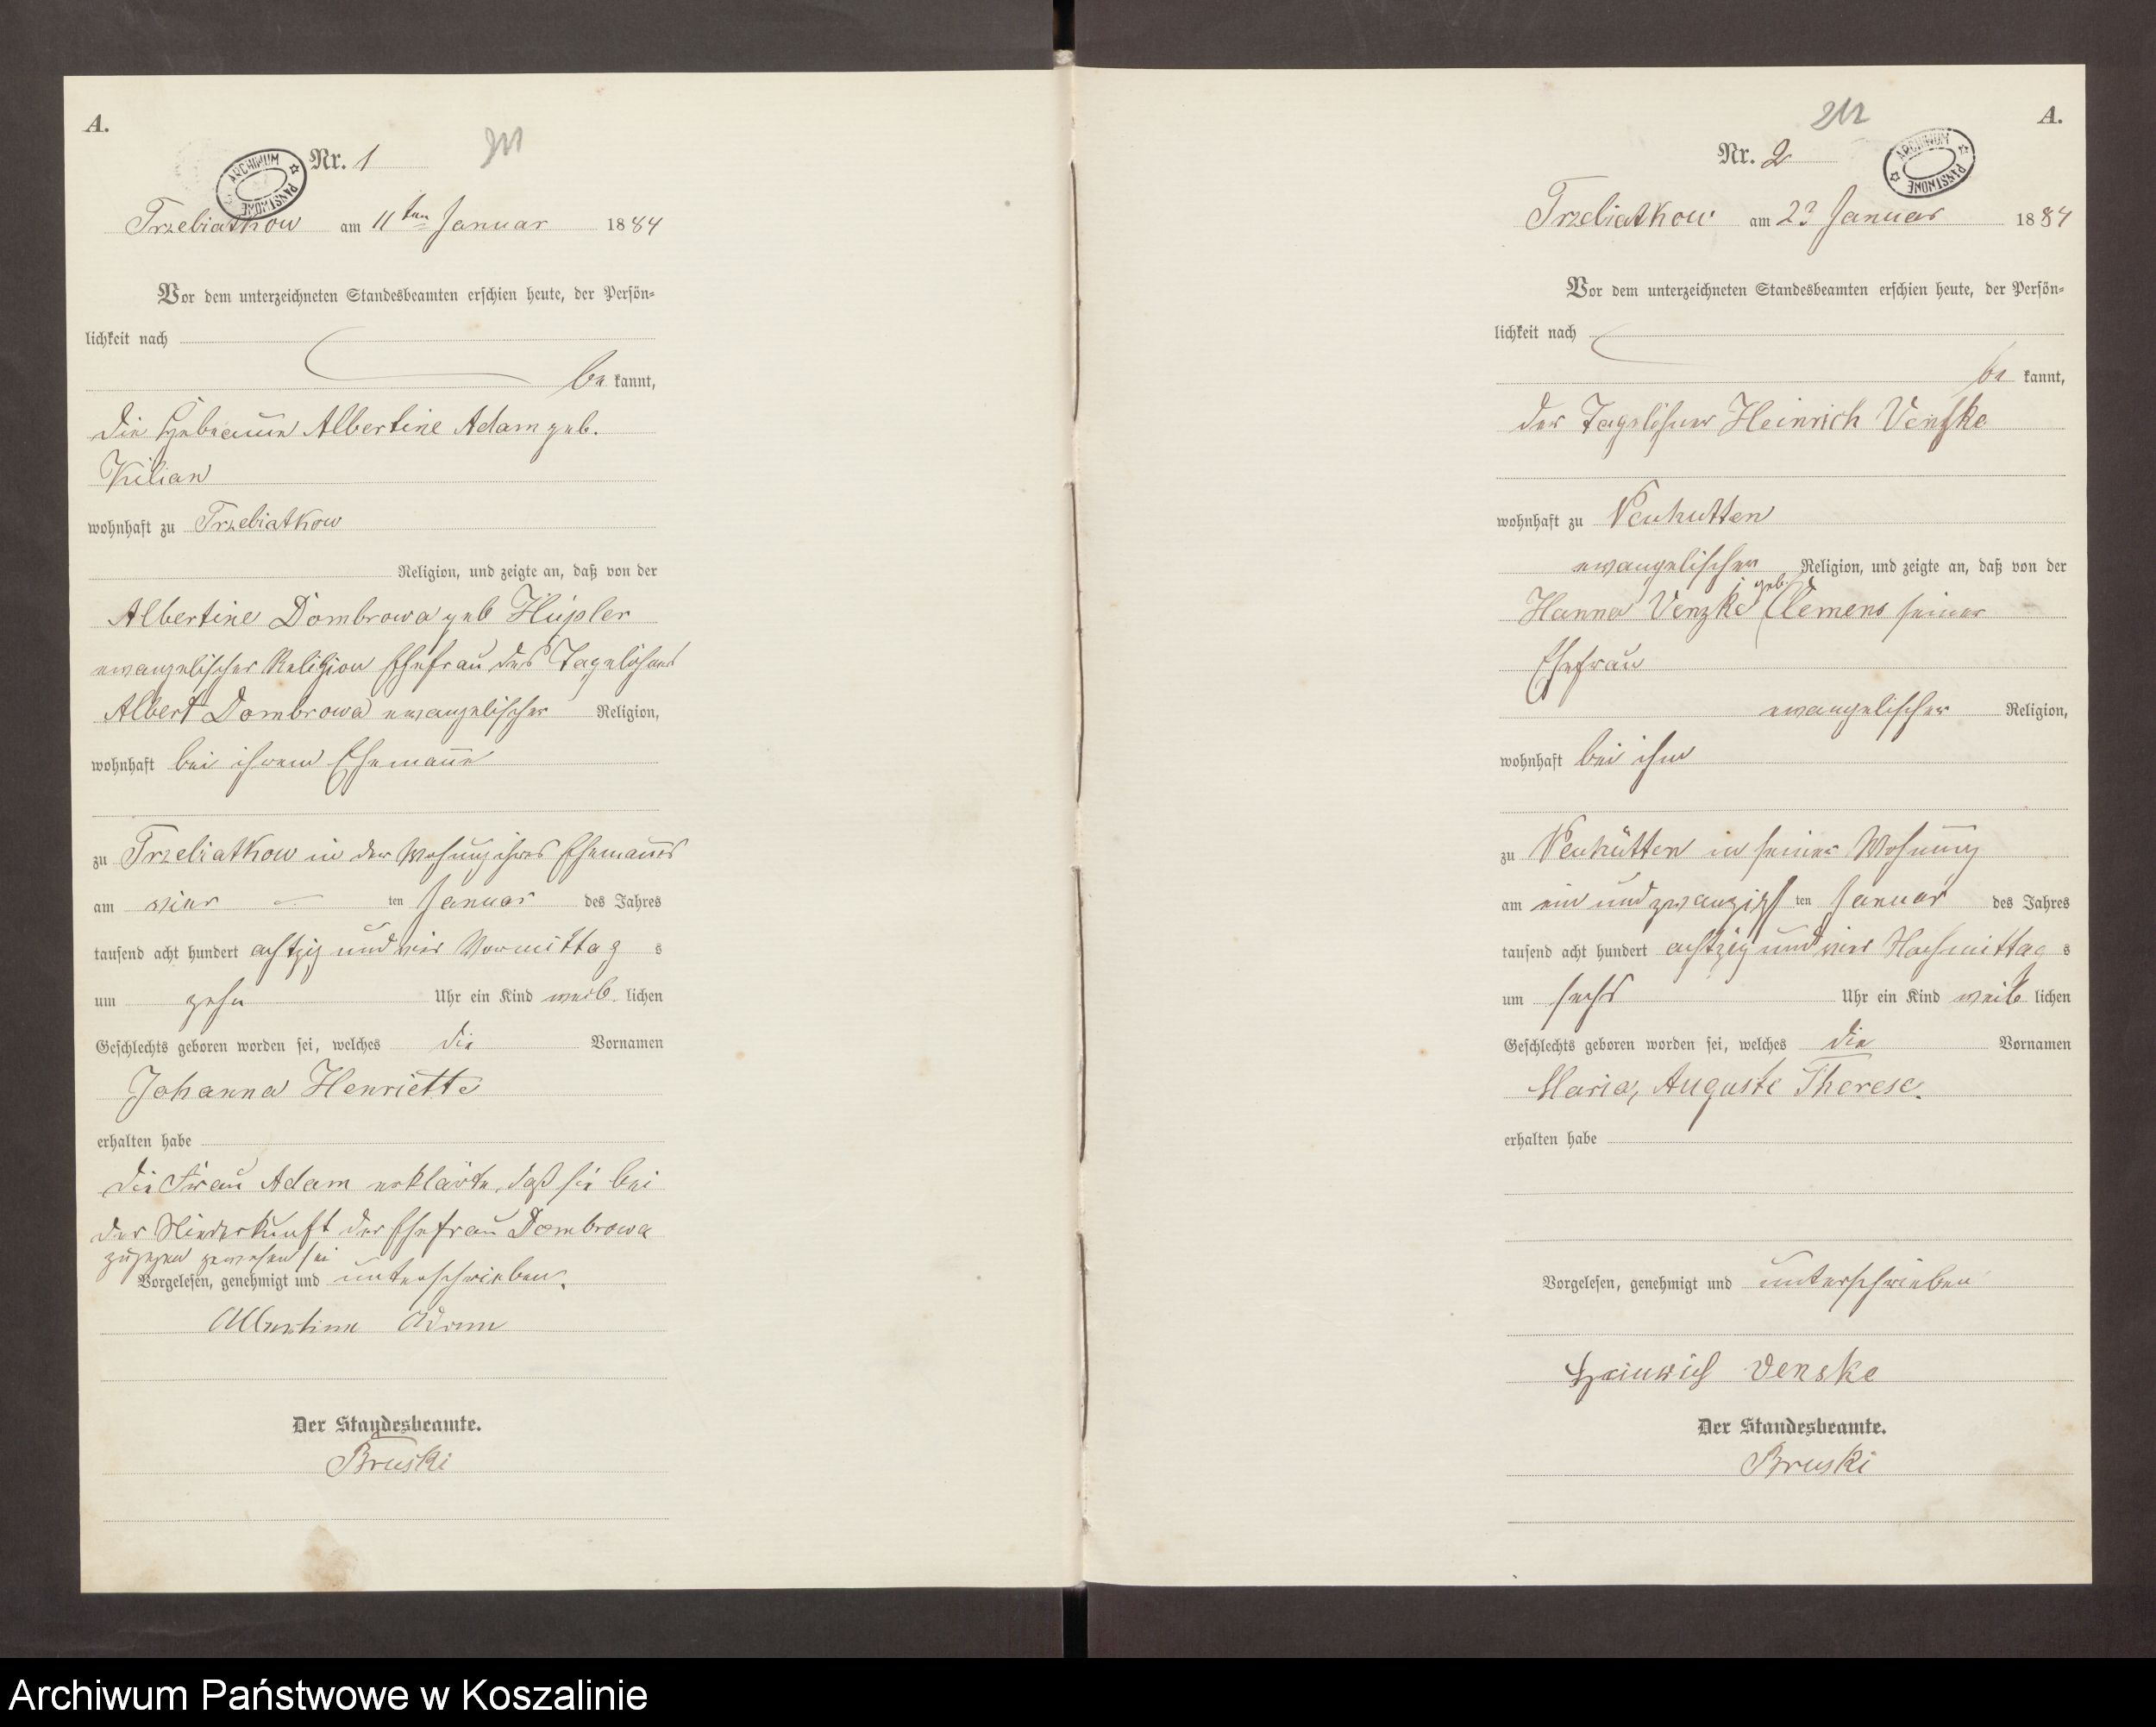 A.
Nr. 1
211
ARCHIWUM PAŃSTWOWE
Trzebiatkow am 11ten Januar 1884
Vor dem unterzeichneten Standesbeamten erschien heute, der Persön-
lichkeit nach
be kannt,
die Hebeamme Albertine Adam geb.
Kilian
wohnhaft zu Trzebiatkow
Religion, und zeigte an, daß von der
Albertine Dombrowa geb Hüpler
ewangelischer Religion Ehefrau des Tagelöhners
Albert Dombrowa ewangelischer Religion,
wohnhaft bei ihrem Ehemanne
zu Trzebiatkow in der Wohnung ihres Ehemannes
am vier ten Januar des Jahres
tausend acht hundert achtzig und vier Vormittag s
um zehn Uhr ein Kind weib lichen
Geschlechts geboren worden sei, welches die Vornamen
Johanna Henriette
erhalten habe
die Frau Adam erklärte, daß sie bei
der Niederkunft der Ehefrau Dombrowa
zugegen gewesen sei
Vorgelesen, genehmigt und unterschrieben.
Albertine Adam
Der Standesbeamte.
Bruski
A.
212
Nr. 2
ARCHIWUM PAŃSTWOWE
Trzebiatkow am Januar 1884
Vor dem unterzeichneten Standesbeamten erschien heute, der Persön-
lichkeit nach
be kannt,
der Tagelöhner Heinrich Venzke
wohnhaft zu Neuhutten
ewangelischer Religion, und zeigte an, daß von der
Hanna Venzke geb. Clemens seiner
Ehefrau
ewangelischer Religion,
wohnhaft bei ihm
zu Neuhütten in seiner Wohnung
am ein und zwanzigs ten Januar des Jahres
tausend acht hundert achtzig und vier Nachmittag s
um sechs Uhr ein Kind weib lichen
Geschlechts geboren worden sei, welches die Vornamen
Maria, Auguste Therese.
erhalten habe
Vorgelesen, genehmigt und unterschrieben
Heinrich Venske
Der Standesbeamte.
Bruski
Archiwum Państwowe w Koszalinie